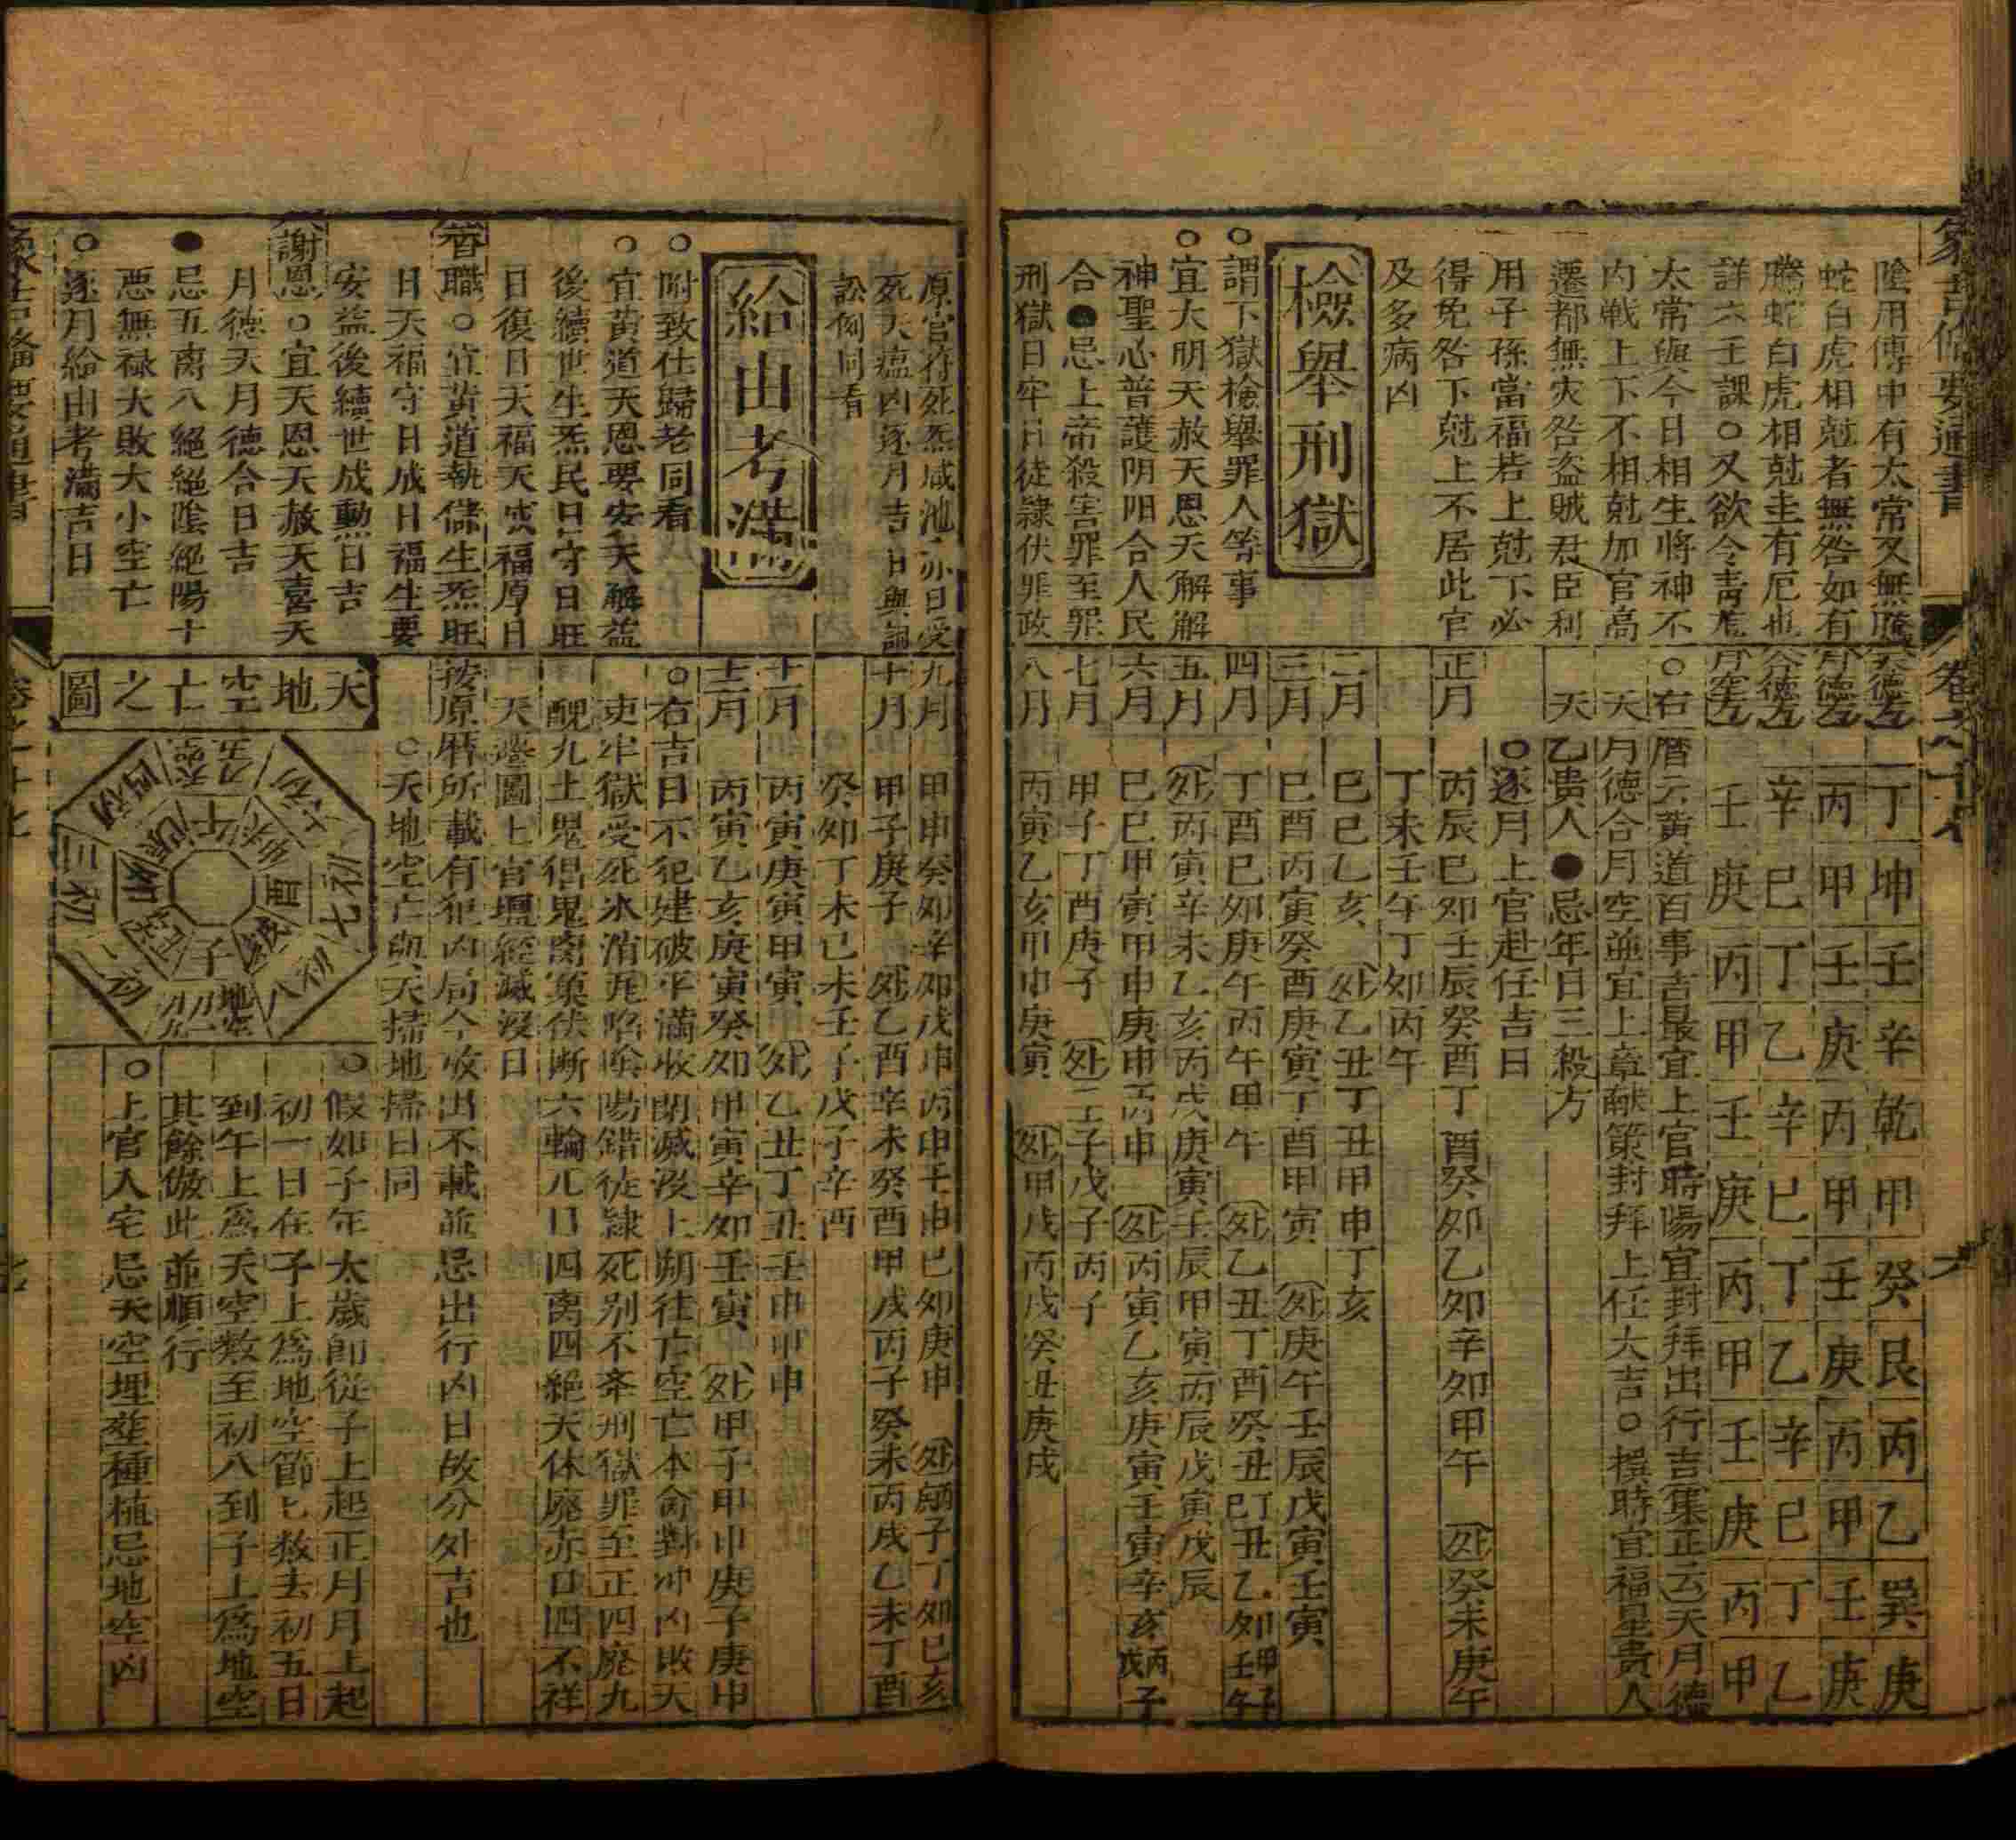 象吉備要通書
卷之二十七
陰用傳中有太常又無騰
蛇白虎相尅者無咎如有
騰蛇白虎相尅主有厄也
詳六壬課○又欲令青龍
太常與今日相生將神不
内戦上下不相尅加官高
遷都無灾咎盗賊君臣利
用子孫當福若上尅下必
得免咎下尅上不居此官
及多病凶
檢舉刑獄
○謂下獄檢舉罪人等事
○宜大明天赦天恩天解解
神聖心普護阴阳合人民
合●忌上帝殺害罪至罪
刑獄日牢日徒隸伏罪政
天德丁坤壬辛乾甲癸艮丙乙巽庚
月德丙甲壬庚丙甲壬庚丙甲壬庚
合德辛巳丁乙辛巳丁乙辛巳丁乙
月空壬庚丙甲壬庚丙甲壬庚丙甲
○右暦云黄道百事吉最宜上官時陽宜封拜出行吉集正云天月德
天月德合月空並宜上章献策封拜上任大吉○撰時宜福星貴人
天乙貴人●忌年日三殺方
○逐月上官赴任吉日
正月 丙辰巳夘壬辰癸酉丁酉癸夘乙夘辛夘甲午 癸未庚午
丁未壬午丁夘丙午
二月 巳巳乙亥 乙丑丁丑甲申丁亥
三月 巳酉丙寅癸酉庚寅丁酉甲寅 庚午壬辰戊寅壬寅
四月 丁酉巳夘庚午丙午甲午 乙丑丁酉癸丑巳丑乙夘甲子壬午
五月 丙寅辛未乙亥丙戌庚寅壬辰甲寅丙辰戊寅戊辰
六月 巳巳甲寅甲申庚申丙申 丙寅乙亥庚寅壬寅辛亥丙子戊子
七月 甲子丁酉庚子 壬子戊子丙子
八月 丙寅乙亥甲申庚寅 甲戌丙戌癸丑庚戌
原官符死炁咸池亦日受
死天瘟凶逐月吉日與詞
訟例同看
給由考滿
○附致仕歸老同看
○宜黄道天恩要安天解益
後續世生炁民日守日旺
日復日天福天成福厚日
晋職○宜黄道執儲生炁旺
日天福守日成日福生要
安益後續世成勳日吉
謝恩○宜天恩天赦天喜天
月德天月德合日吉
●忌五离八絕絕陰絕陽十
惡無禄大敗大小空亡
○逐月給由考滿吉日
九月 甲申癸夘辛夘戊申丙申壬申巳夘庚申 子丁夘巳亥
十月 甲子庚子 乙酉辛未癸酉甲戌丙子癸未丙戌乙未丁酉
癸夘丁未巳未壬子戊子辛酉
十一月 丙寅庚寅甲寅 乙丑丁丑壬申甲申
十二月 丙寅乙亥庚寅癸夘甲寅辛夘壬寅 甲子甲申庚子庚申
○右吉日不犯建破平滿收閉滅没上朔往亡空亡本命對冲凶敗天
吏牢獄受死氷消瓦陷陰陽錯徒隸死别不举刑獄罪至正四廢九
醜九土鬼倡鬼离窠伏断六輪兀日四离四絕天休廢赤口四不祥
天遷圖上官壇經滅没日
按原曆所載有犯凶局今收出不載並忌出行凶日故分外吉也
○天地空亡即天掃地掃日同
天地空亡之圖
天空
午
未
酉
子
地空
夘
三初
二初
四初
六初
七初
八初
○假如子年太歲即從子上起正月月上起
初一日在子上爲地空節七数去初五日
到午上爲天空数至初八到子上爲地空
其餘倣此並順行
○上官入宅忌天空埋塟種植忌地空凶
象吉備要通書
卷之二十七